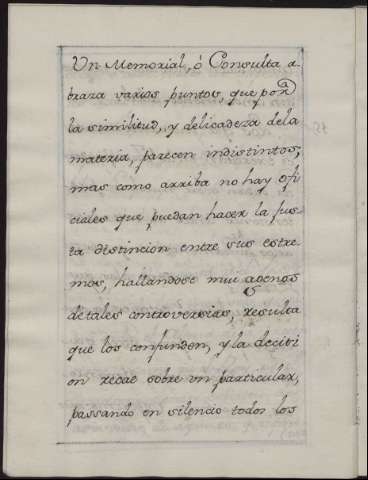 Un Memorial, ó Consulta a-
braza varios puntos, que por
la similitud, y delicadeza dela
materia, parecen indistintos,
mas como arriba no hay ofi
ciales que puedan hacer la jus-
ta distincion entre sus estre
mos, hallandose mui agenos
de tales controversias, resulta
que los confunden, y la decisi
on recae sobre un particular,
passando en silencio todos los